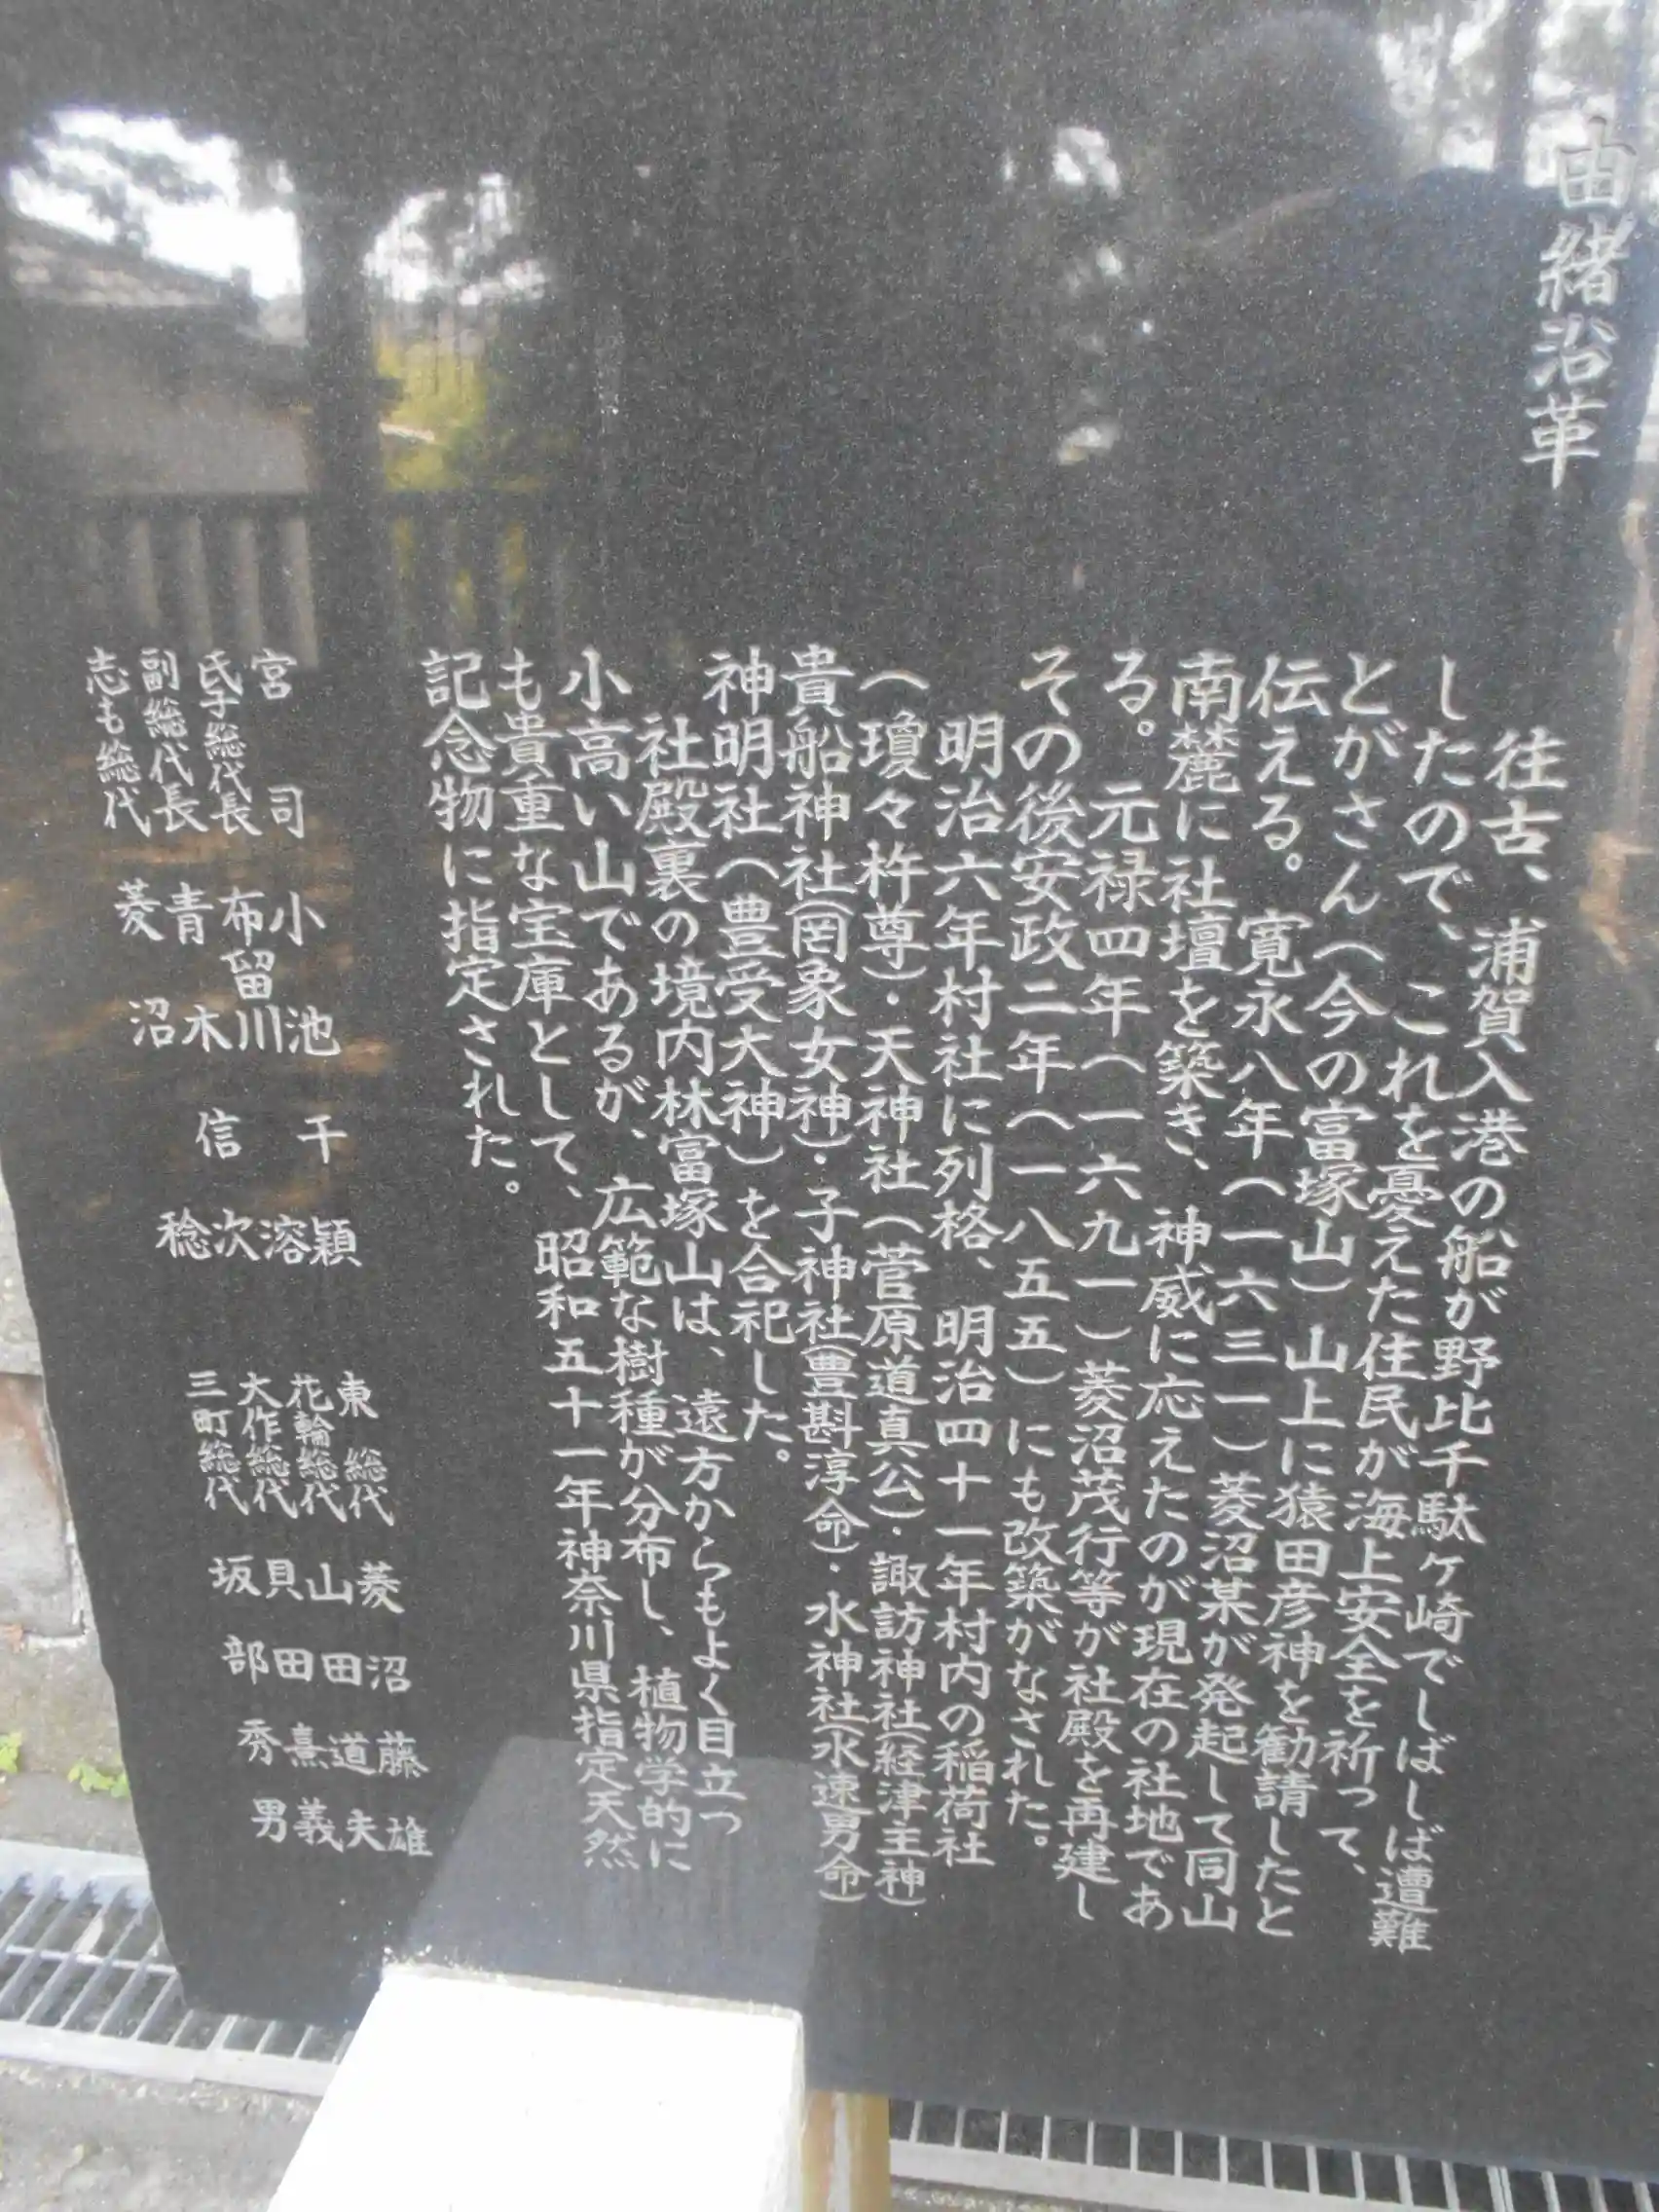 由緒沿革
往古、浦賀入港の船が野比千駄ヶ崎でしばしば遭難
したので、これを憂えた住民が海上安全を祈って、
とがさん（今の富塚山）山上に猿田彦神を勧請したと
伝える。寛永八年（一六三一）菱沼某が発起して同山
南麓に社壇を築き、神威に応えたのが現在の社地であ
る。元禄四年（一六九一）菱沼茂行等が社殿を再建し
その後安政二年（一八五五）にも改築がなされた。
明治六年村社に列格、明治四十一年村内の稲荷社
（瓊々杵尊）・天神社（菅原道真公）・諏訪神社（経津主神）
貴船神社（罔象女神）・子神社（豊斟渟命）・水神社（水速男命）
神明社（豊受大神）を合祀した。
社殿裏の境内林富塚山は、遠方からもよく目立つ
小高い山であるが、広範な樹種が分布し、植物学的に
も貴重な宝庫として、昭和五十一年神奈川県指定天然
記念物に指定された。
宮司 小池千穎
氏子総代長 布留川溶
副総代長 青木信次
志も総代 菱沼稔
東総代 菱沼藤雄
花輪総代 山田道夫
大作総代 貝田熹義
三町総代 坂部秀男